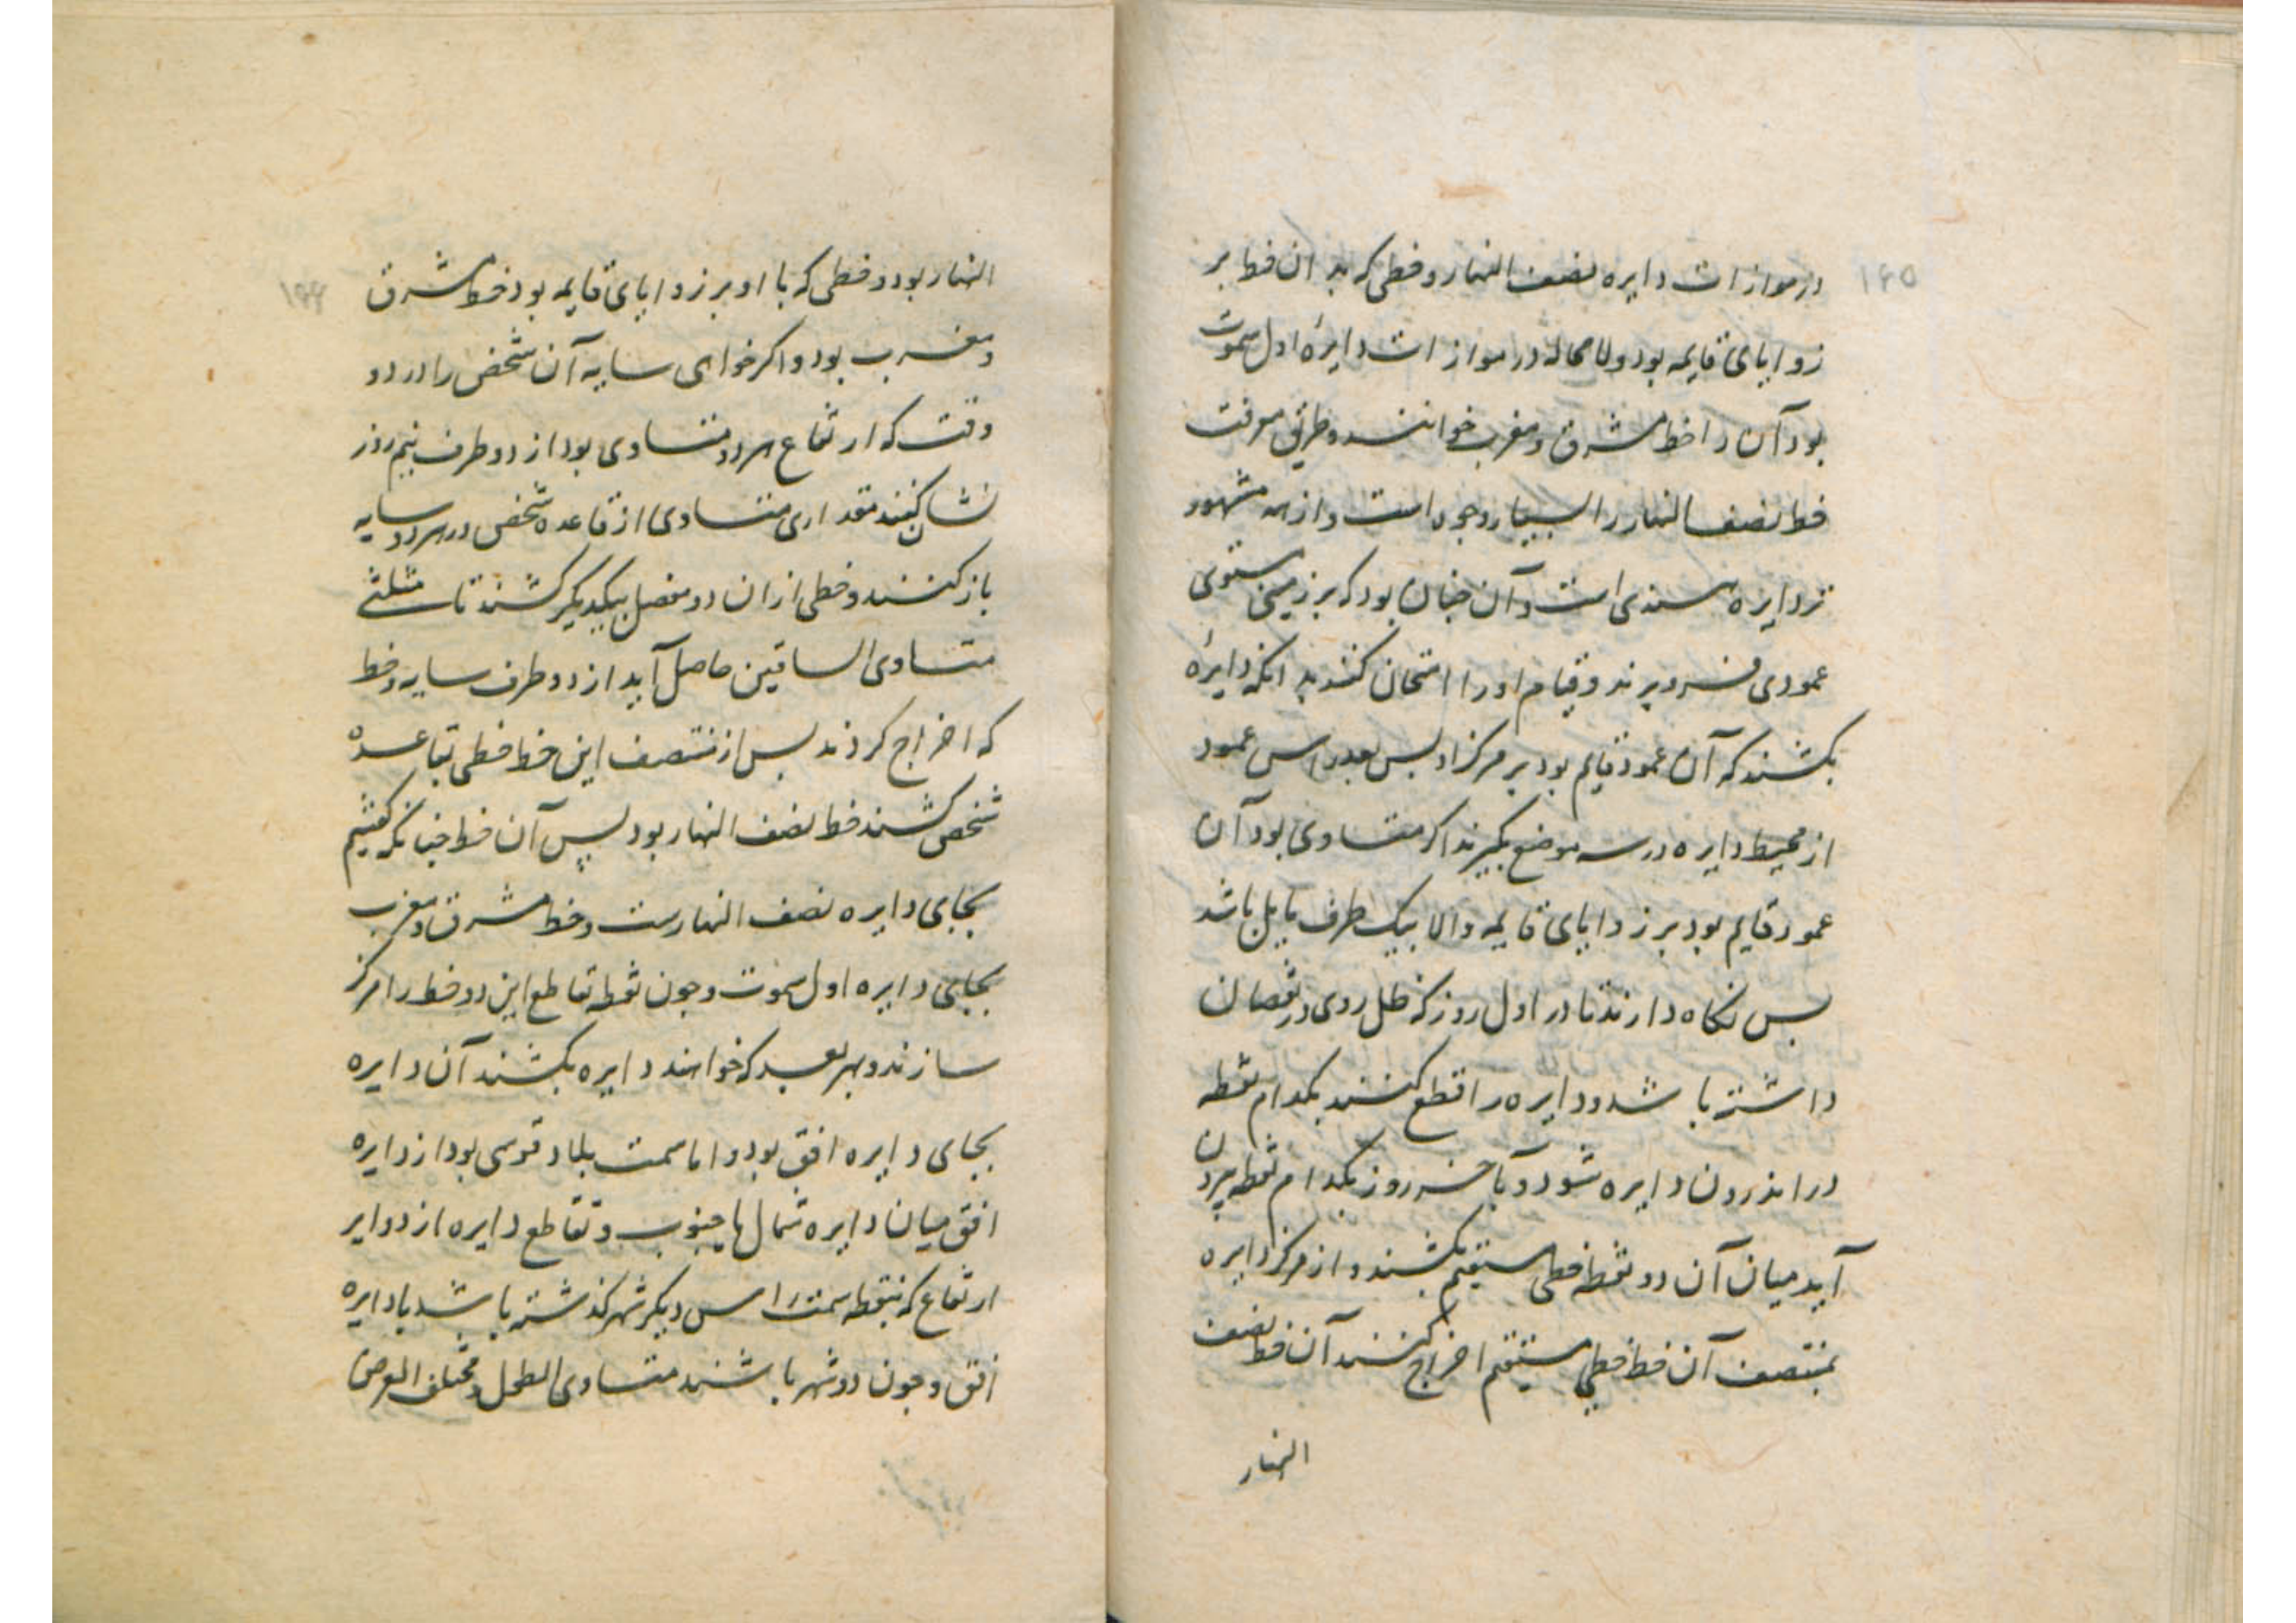 ۱۶۵
در موازات دایره نصف النهار و خطی که بد ان خط بر
زوایای قایمه بود و لا محاله در موازات دایرهٔ اول سموت
بود آن را خط مشرق و مغرب خوانند و طریق معرفت
خط نصف النهار را بسیار وجوه است و از همه مشهور
تر دایره هندی است و آن چنان بود که بر زمینی مستوی
عمودی فرو برند و قیام او را امتحان کنند بد انکه دایرهٔ
بکشند که آن عمود قایم بود بر مرکز او بس بعد راس عمود
از محیط دایره در سه موضع بگیرند اگر متساوی بود آن
عمود قایم بود بر زوایای قایمه و الا بیک طرف مایل باشد
بس نکاه دارند تا در اول روز که ظل روی در نقصان
داشته باشد و دایره را قطع کنند بکدام نقطه
در اندرون دایره شود و بآخر روز بکدام نقطه بیرون
آید میان آن دو نقطه خطی مستقیم بکشند و از مرکز دایره
بمنتصف آن خط خطی مستقیم اخراج کنند آن خط نصف
النهار
۱۶۶
النهار بود و خطی که با او بر زوایای قایمه بود خط مشرق
و مغرب بود و اکر خواهی سایه آن شخص را در دو
وقت که ارتفاع هر دو متساوی بود از دو طرف نیم روز
نشان کنند مقداری متساوی از قاعده شخص در هر دو سایه
باز کنند و خطی از ان دو مفصل بیکدیکر کشند تا مثلثی
متساوی الساقین حاصل آید از دو طرف سایه و خط
که اخراج کردند بس از منتصف این خط خطی بقاعده
شخص کشند خط نصف النهار بود پس آن خط چنانکه کفتیم
بجای دایره نصف النهارست و خط مشرق و مغرب
بجای دایره اول سموت و جون نقطه تقاطع این دو خط را مرکز
سازند و بهر بعد که خواهند دایره بکشند آن دایره
بجای دایره افق بود و اما سمت بلاد قوسی بود از دایره
افق میان دایره شمال یا جنوب و تقاطع دایره از دوایر
ارتفاع که بنقطه سمت راس دیکر شهر کذشته باشد با دایره
افق و جون دو شهر باشند متساوی الطول و مختلف العرض